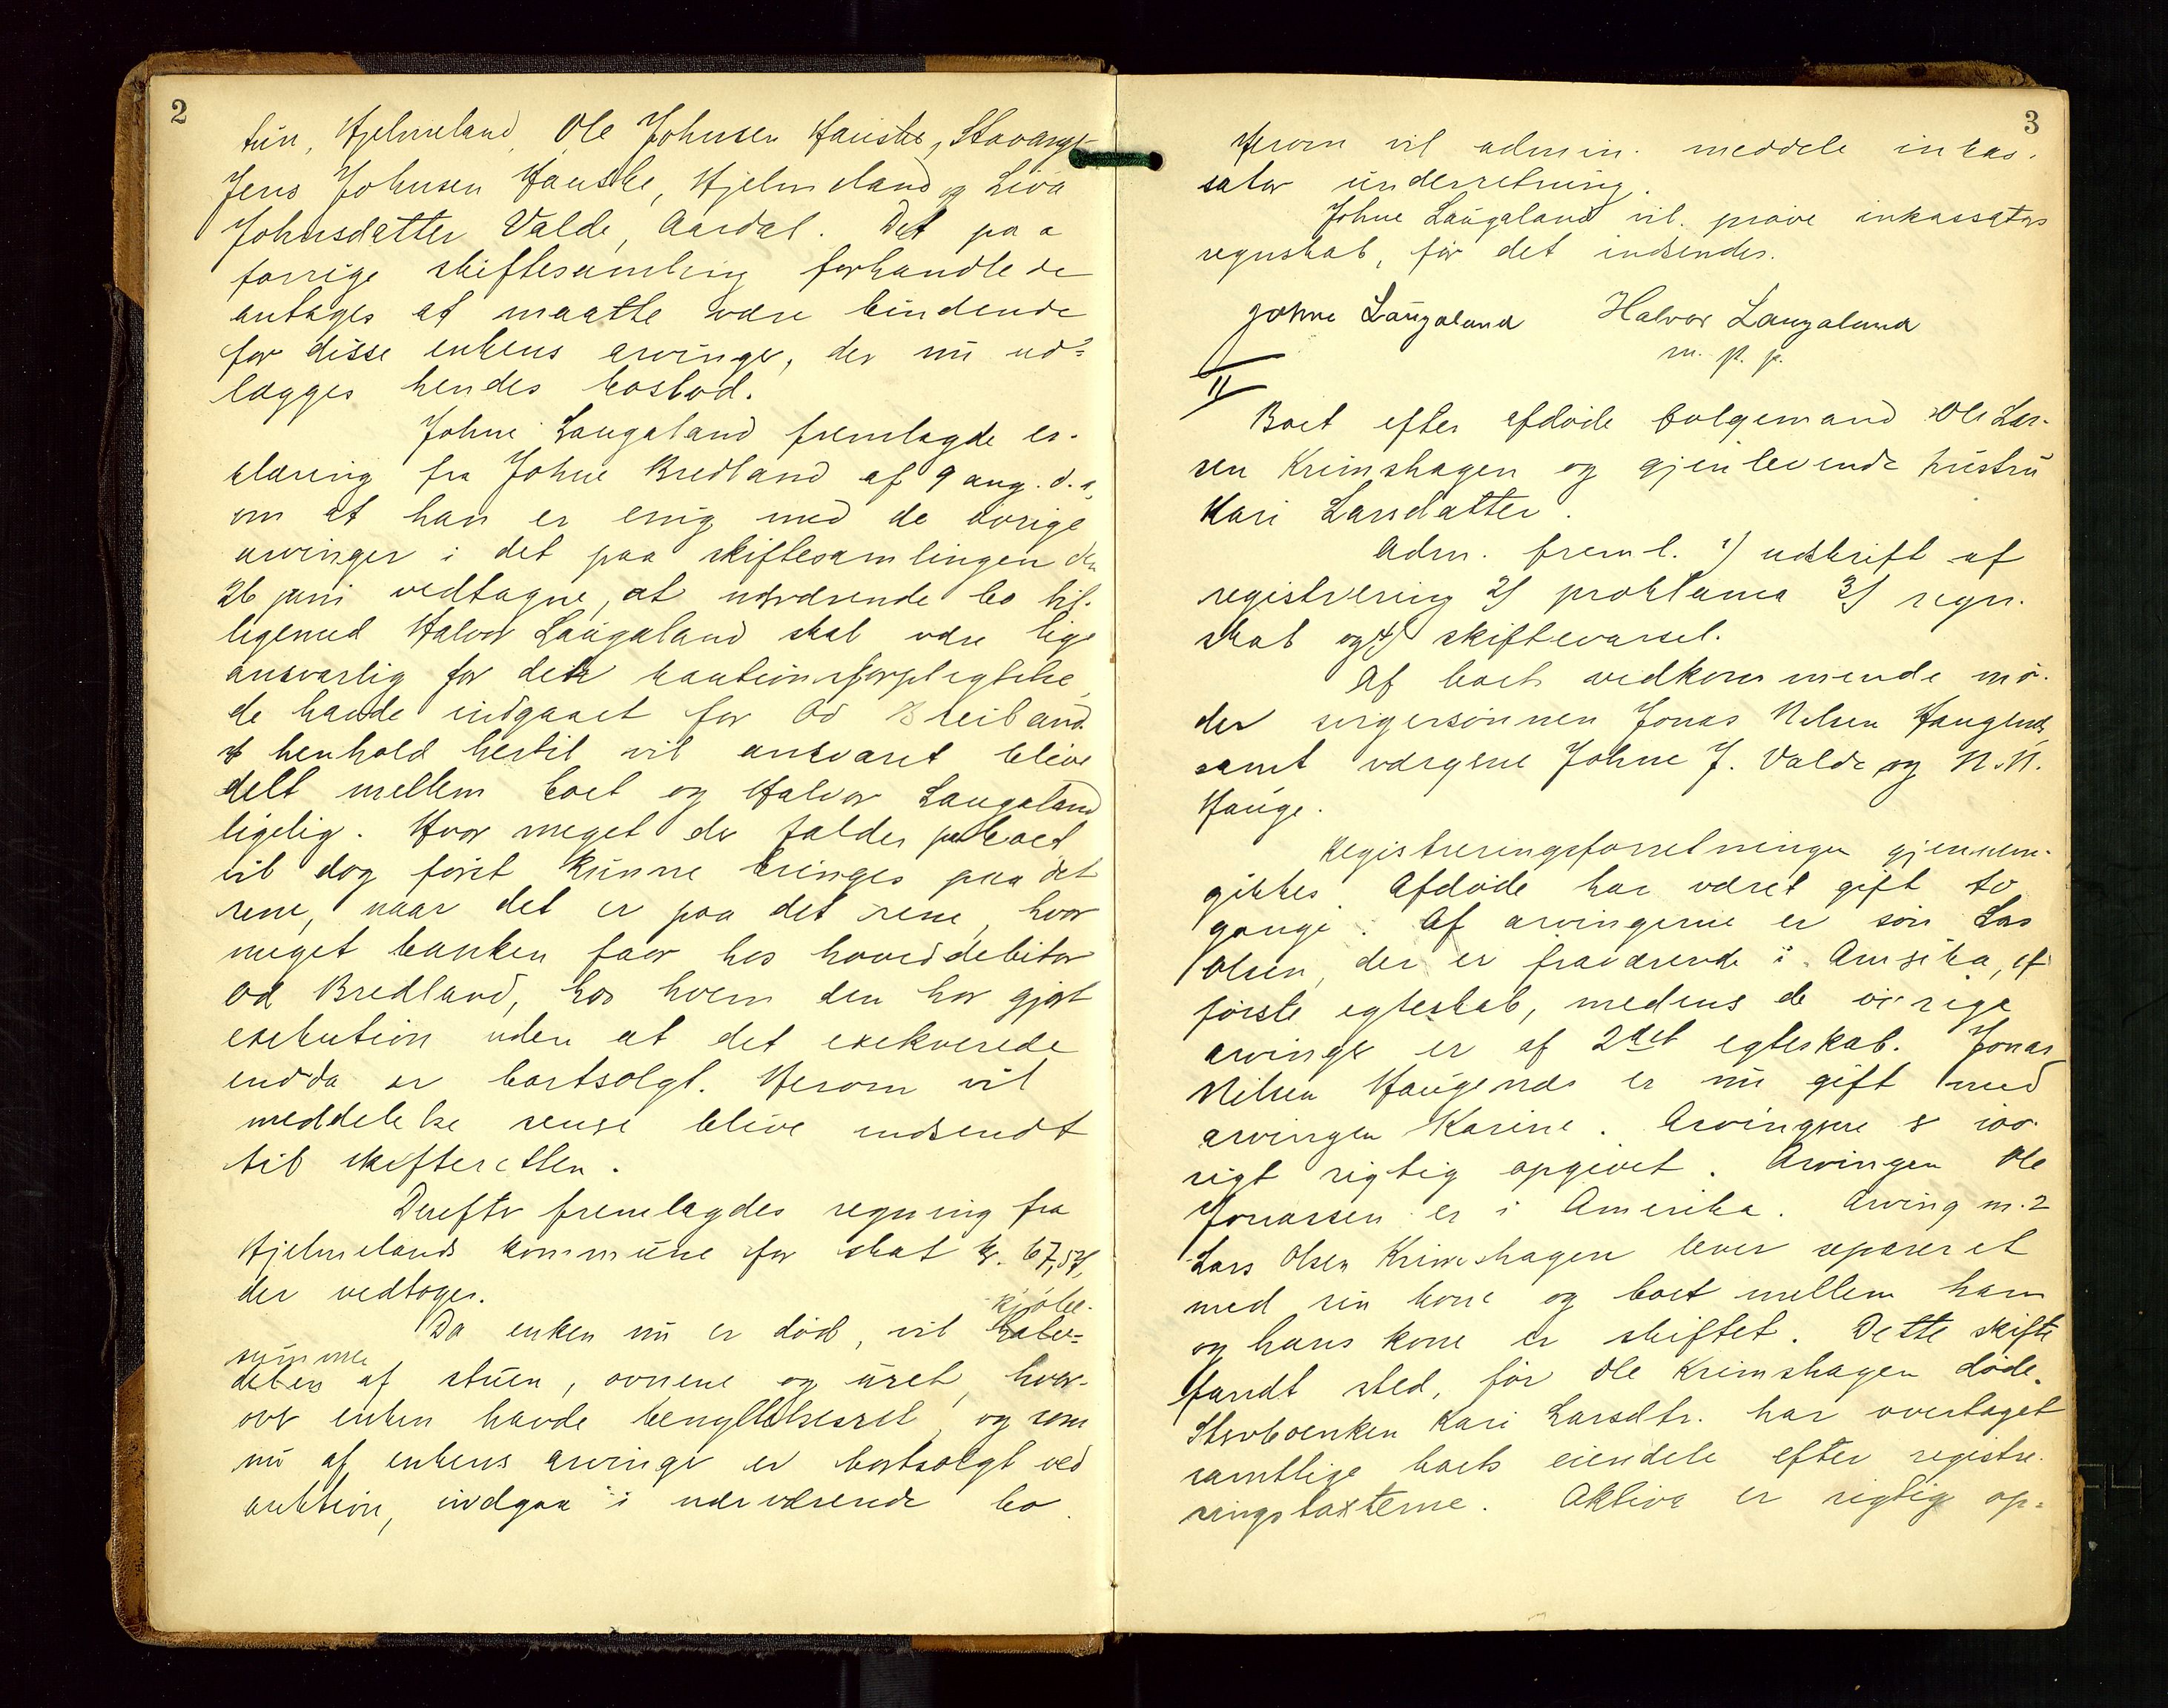 2
tun, Hjelmeland, Ole Johnsen Hauske, Stavanger
Jens Johnsen Hauske, Hjelmeland og Liva
Johnsdatter Valde, Aardal. Det paa
forrige skiftesamling forhandlede
antages at maatte være bindende
for disse enkens arvinger, der nu ud-
lægges hendes boslod.
Johne Laugaland fremlagde er-
klæring fra Johne Bredland af 9 aug. d. a.
om at han er enig med de øvrige
arvinger i det paa skiftesamlingen den
26 juni vedtagne, at nærværende bo til-
ligemed Halvor Laugaland skal være lige
ansvarlig for den kautionsforpligtelse
de havde indgaaet for Od Breiland.
I henhold hertil vil ansvaret blive
delt mellem boet og Halvor Laugaland
ligelig. Hvor meget der falder paa boet
vil dog først kunne bringes paa det
rene, naar det er paa det rene, hvor
meget banken faar hos hoveddebitor
Od Bredland, hos hvem den har gjort
exekution uden at det exekverede
endda er bortsolgt. Herom vil
meddelelse senere blive indsendt
til skifteretten.
Derefter fremlagdes regning fra
Hjelmelands kommune for skat kr. 67,57,
der vedtoges.
kjøbe-
Da enken nu er død, vil
summen
af stuen, ovnene og uret, hvor-
over enken havde benyttelsesret, og som
nu af enkens arvinger er bortsolgt ved
auktion, indgaa i nærværende bo.
3
Herom vil admin. meddele inkas-
sator underretning.
Johne Laugaland vil prøve inkassators
regnskab, før det indsendes.
Johne Laugaland Halvor Laugaland
m. p. p.
II
Boet efter afdøde folgemand Ole Lar-
sen Krimshagen og gjenlevende hustru
Kari Larsdatter.
Adm. freml. 1) udskrift af
registrering 2) proklama 3) regn-
skab og 4) skiftevarsel.
Af boets vedkommende mø-
der svigersønnen Jonas Nilsen Haugend
samt værgerne Johne J. Valde og N. N.
Hauge.
Registreringsforretningen gjennem-
gikkes. Afdøde har været gift to
gange. Af arvingerne er søn Lars
Olsen, der er fraværende i Amerika, af
første egteskab, medens de øvrige
arvinger er af 2det egteskab. Jonas
Nilsen Haugende er nu gift med
arvingen Karine. Arvingerne er iøv-
rigt rigtig opgivet. Arvingen Ole
Jonassen er i Amerika. Arving m. 2
Lars Olsen Krimshagen lever separeret
med sin kone og boet mellem ham
og hans kone er skiftet. Dette skifte
fandt sted, før Ole Krimshagen døde.
Stervboenken Kari Larsdtr. har overtaget
samtlige boets eiendele efter registre-
ringstaxterne. Aktiva er rigtig op-